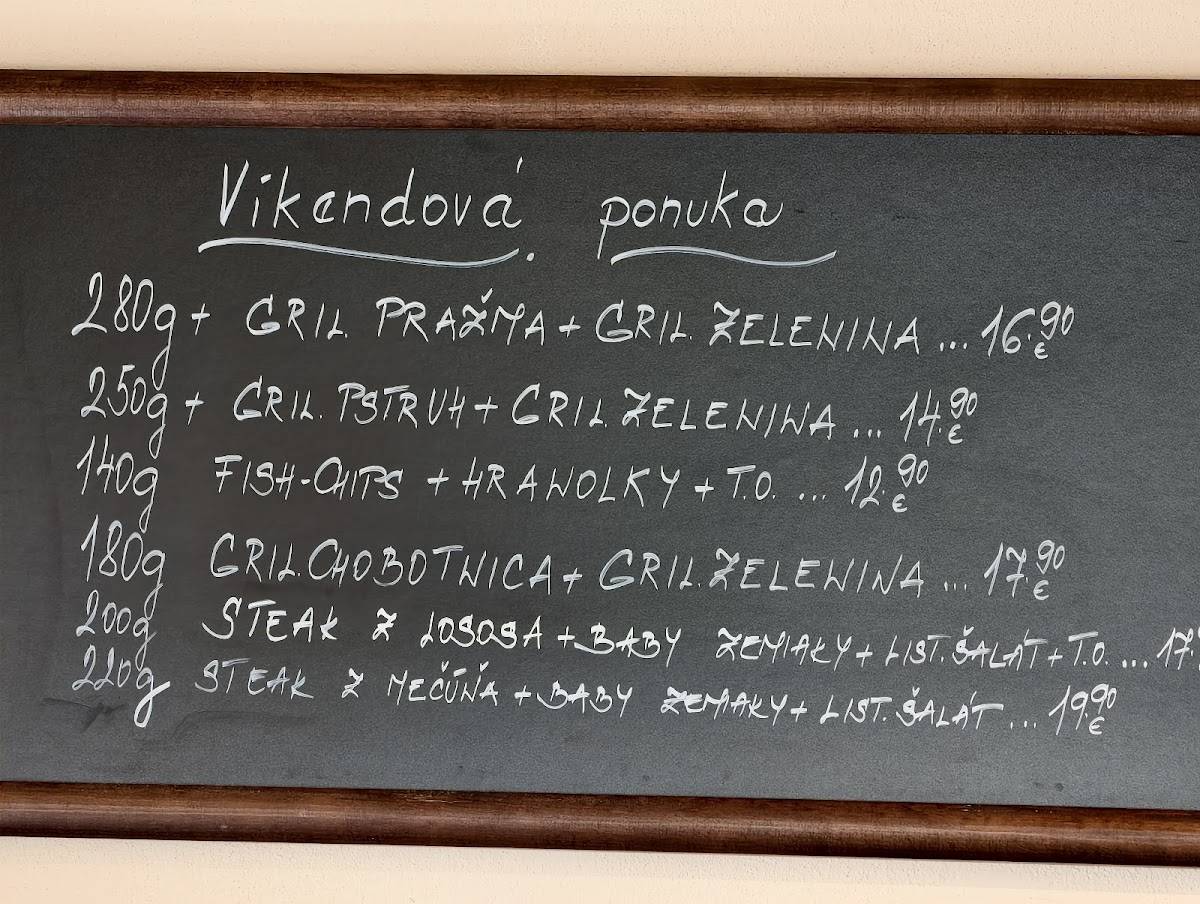 Víkendová ponuka
280g + GRIL. PRAŽMA + GRIL. ZELENINA ... 16.90 €
250g + GRIL. PSTRUH + GRIL. ZELENINA ... 14.90 €
140g FISH-CHIPS + HRANOLKY + T.O. ... 12.90 €
180g GRIL. CHOBOTNICA + GRIL. ZELENINA ... 17.90 €
200g STEAK Z LOSOSA + BABY ZEMIAKY + LIST. ŠALÁT + T.O. ... 17.
220g STEAK Z MEČÚŇA + BABY ZEMIAKY + LIST. ŠALÁT ... 19.90 €